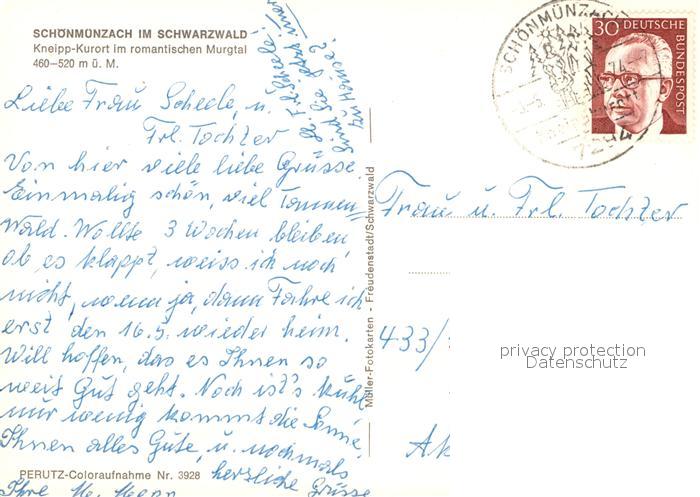 SCHÖNMÜNZACH IM SCHWARZWALD
Kneipp-Kurort im romantischen Murgtal
460–520 m ü. M.
Liebe Frau Scheele, u.
Frl. Tochter
Von hier viele liebe Grüsse.
Einmalig schön, viel Tannen=
wald. Wollte 3 Wochen bleiben,
ob es klappt, weiss ich noch
nicht, wenn ja, dann fahre ich
erst den 16.5. wieder heim.
Will hoffen, das es Ihnen so
weit Gut geht. Noch ist's kühl
nur wenig kommt die Sonne.
Ihnen alles Gute, u. nochmals
herzliche Grüsse
Ihre
PERUTZ-Coloraufnahme Nr. 3928
Frl. Scheele,
sind Sie jetzt immer
zu Hause?
Müller-Fotokarten - Freudenstadt/Schwarzwald
SCHÖNMÜNZACH
30 DEUTSCHE
BUNDESPOST
Frau u. Frl. Tochter
433/
Ak
privacy protection
Datenschutz